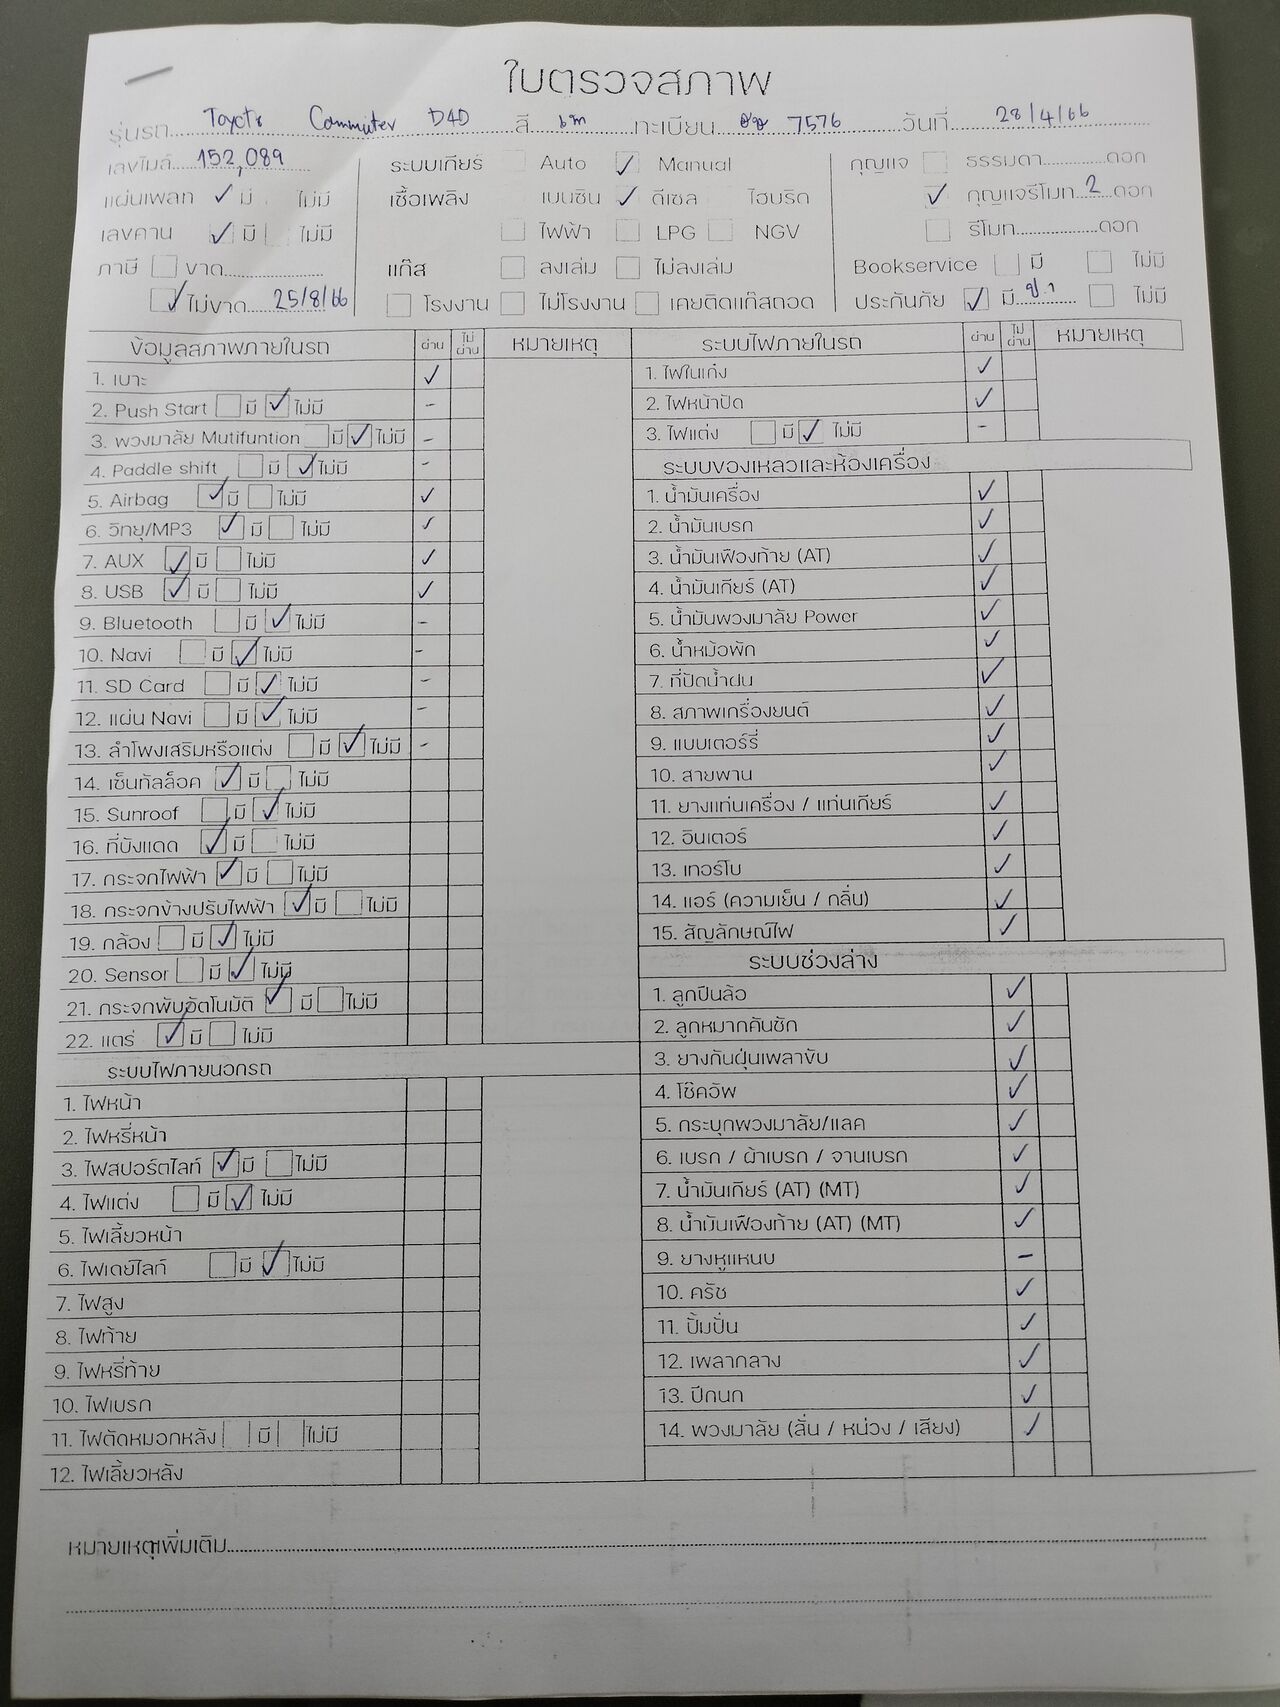 ใบตรวจสภาพ
รุ่นรถ Toyota Commuter D4D สี เทา ทะเบียน 7576 วันที่ 28/4/66
เลขไมล์ 152,089 ระบบเกียร์ Auto ✓ Manual กุญแจ ธรรมดา ดอก
แผ่นเพลท ✓ มี ไม่มี เชื้อเพลิง เบนซิน ✓ ดีเซล ไฮบริด ✓ กุญแจรีโมท 2 ดอก
เลขคาน ✓ มี ไม่มี ไฟฟ้า LPG NGV รีโมท ดอก
ภาษี ขาด แก๊ส ลงเล่ม ไม่ลงเล่ม Bookservice มี ไม่มี
✓ ไม่ขาด 25/8/66 โรงงาน ไม่โรงงาน เคยติดแก๊สถอด ประกันภัย ✓ มี ป.1 ไม่มี
ข้อมูลสภาพภายในรถ ผ่าน ไม่ผ่าน หมายเหตุ
1. เบาะ ✓
2. Push Start มี ✓ ไม่มี -
3. พวงมาลัย Mutifuntion มี ✓ ไม่มี -
4. Paddle shift มี ✓ ไม่มี -
5. Airbag ✓ มี ไม่มี ✓
6. วิทยุ/MP3 ✓ มี ไม่มี ✓
7. AUX ✓ มี ไม่มี ✓
8. USB ✓ มี ไม่มี ✓
9. Bluetooth มี ✓ ไม่มี -
10. Navi มี ✓ ไม่มี -
11. SD Card มี ✓ ไม่มี -
12. แผ่น Navi มี ✓ ไม่มี -
13. ลำโพงเสริมหรือแต่ง มี ✓ ไม่มี -
14. เซ็นทัลล็อค ✓ มี ไม่มี
15. Sunroof มี ✓ ไม่มี
16. ที่บังแดด ✓ มี ไม่มี
17. กระจกไฟฟ้า ✓ มี ไม่มี
18. กระจกข้างปรับไฟฟ้า ✓ มี ไม่มี
19. กล้อง มี ✓ ไม่มี
20. Sensor มี ✓ ไม่มี
21. กระจกพับอัตโนมัติ ✓ มี ไม่มี
22. แตร่ ✓ มี ไม่มี
ระบบไฟภายนอกรถ
1. ไฟหน้า
2. ไฟหรี่หน้า
3. ไฟสปอร์ตไลท์ ✓ มี ไม่มี
4. ไฟแต่ง มี ✓ ไม่มี
5. ไฟเลี้ยวหน้า
6. ไฟเดย์ไลท์ มี ✓ ไม่มี
7. ไฟสูง
8. ไฟท้าย
9. ไฟหรี่ท้าย
10. ไฟเบรก
11. ไฟตัดหมอกหลัง มี ไม่มี
12. ไฟเลี้ยวหลัง
ระบบไฟภายในรถ ผ่าน ไม่ผ่าน หมายเหตุ
1. ไฟในเก๋ง ✓
2. ไฟหน้าปัด ✓
3. ไฟแต่ง มี ✓ ไม่มี -
ระบบของเหลวและห้องเครื่อง
1. น้ำมันเครื่อง ✓
2. น้ำมันเบรก ✓
3. น้ำมันเฟืองท้าย (AT) ✓
4. น้ำมันเกียร์ (AT) ✓
5. น้ำมันพวงมาลัย Power ✓
6. น้ำหม้อพัก ✓
7. ที่ปัดน้ำฝน ✓
8. สภาพเครื่องยนต์ ✓
9. แบบเตอร์รี่ ✓
10. สายพาน ✓
11. ยางแท่นเครื่อง / แท่นเกียร์ ✓
12. อินเตอร์ ✓
13. เทอร์โบ ✓
14. แอร์ (ความเย็น / กลิ่น) ✓
15. สัญลักษณ์ไฟ ✓
ระบบช่วงล่าง
1. ลูกปืนล้อ ✓
2. ลูกหมากคันชัก ✓
3. ยางกันฝุ่นเพลาขับ ✓
4. โช๊คอัพ ✓
5. กระบุกพวงมาลัย/แลค ✓
6. เบรก / ผ้าเบรก / จานเบรก ✓
7. น้ำมันเกียร์ (AT) (MT) ✓
8. น้ำมันเฟืองท้าย (AT) (MT) ✓
9. ยางหูแหนบ -
10. ครัช ✓
11. ปั้มปั่น ✓
12. เพลากลาง ✓
13. ปีกนก ✓
14. พวงมาลัย (สั่น / หน่วง / เสียง) ✓
หมายเหตุเพิ่มเติม